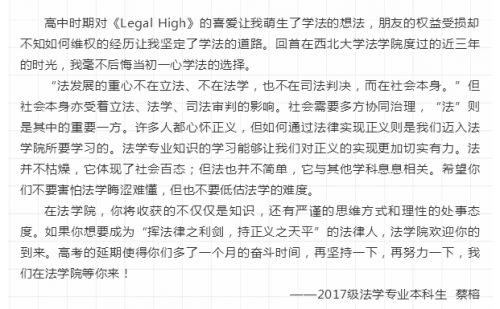 高中时期对《Legal High》的喜爱让我萌生了学法的想法，朋友的权益受损却
不知如何维权的经历让我坚定了学法的道路。回首在西北大学法学院度过的近三年
的时光，我毫不后悔当初一心学法的选择。
“法发展的重心不在立法、不在法学，也不在司法判决，而在社会本身。”但
社会本身亦受着立法、法学、司法审判的影响。社会需要多方协同治理，“法”则
是其中的重要一方。许多人都心怀正义，但如何通过法律实现正义则是我们迈入法
学院所要学习的。法学专业知识的学习能够让我们对正义的实现更加切实有力。法
并不枯燥，它体现了社会百态；但法也并不简单，它与其他学科息息相关。希望你
们不要害怕法学晦涩难懂，但也不要低估法学的难度。
在法学院，你将收获的不仅仅是知识，还有严谨的思维方式和理性的处事态
度。如果你想要成为“挥法律之利剑，持正义之天平”的法律人，法学院欢迎你的
到来。高考的延期使得你们多了一个月的奋斗时间，再坚持一下，再努力一下，我
们在法学院等你来！
——2017级法学专业本科生 蔡榕